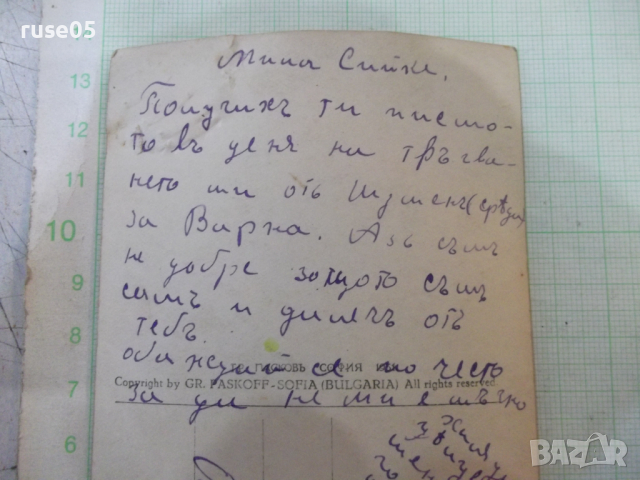 ruse05
Мила Сийке,
Получихъ ти писмо-
то въ деня на тръгва-
нето ми отъ Шуменъ (сряда)
за Варна. Азъ съмъ
не добре защото съмъ
самъ и далечъ отъ
тебъ.
обаждай се по често
ГР. ПАСКОВЪ СОФИЯ
Copyright by GR. PASKOFF-SOFIA (BULGARIA) All rights reserved.
за да не ми е мъчно
13
12
11
10
9
8
7
6
bazar.bg